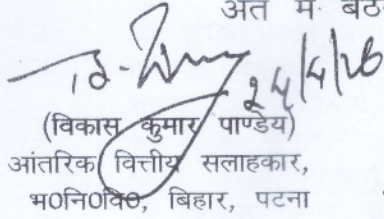 अंत में बैठ
24/4/26
(विकास कुमार पाण्डेय)
आंतरिक वित्तीय सलाहकार,
भ0नि0वि0, बिहार, पटना